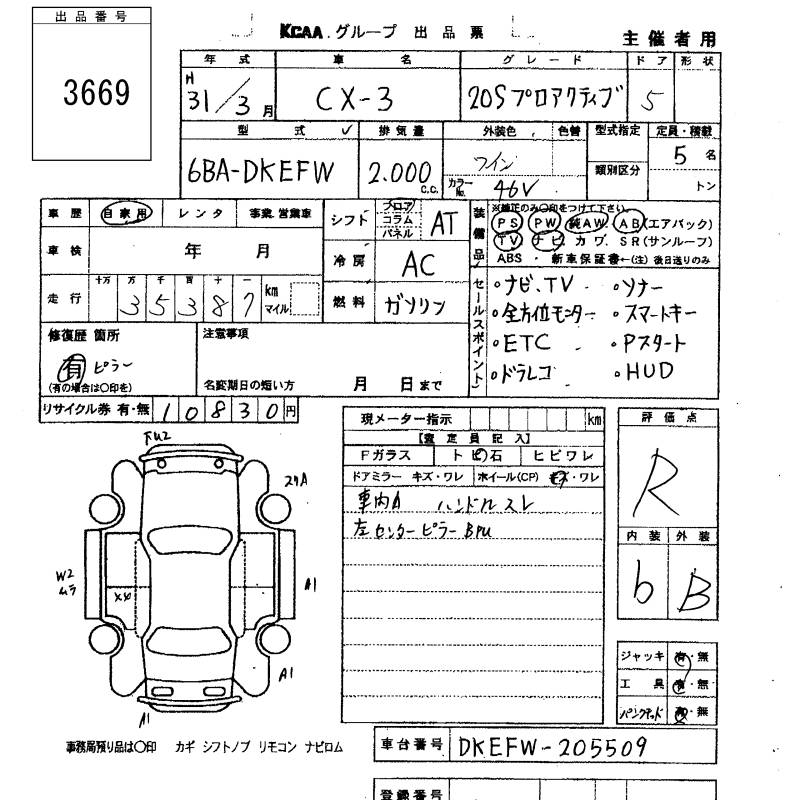 出品番号
3669
KCAA グループ 出品票
主催者用
年式 車名 グレード ドア 形状
H 31/3月 CX-3 20Sプロアクティブ 5
型式 排気量 外装色 色替 型式指定 定員・積載
6BA-DKEFW 2.000 c.c. ワイン 5名
カラーNo. 46V 類別区分 トン
車歴 自家用 レンタ 事業.営業車
シフト フロア コラム パネル AT
装備品 ※純正のみ○印をつけて下さい
PS PW 純AW AB(エアバック)
TV ナビ カワ SR(サンルーフ)
ABS ・ 新車保証書←(注)後日送りのみ
車検 年 月
冷房 AC
走行 十万 万 千 百 十 一 35387 km マイル
燃料 ガソリン
セールスポイント
・ナビ.TV ・ソナー
・全方位モニター ・スマートキー
・ETC ・Pスタート
・ドラレコ ・HUD
修復歴 箇所
有 ピラー
(有の場合は○印を)
注意事項
名変期日の短い方 月 日まで
リサイクル券 有・無 10830円
現メーター指示 km
【査定員記入】
Fガラス トビ石 ヒビワレ
ドアミラー キズ・ワレ ホイール(CP) キズ・ワレ
車内A ハンドルスレ
左センターピラーBPU
評価点
R
内装 外装
b B
ジャッキ 有・無
工具 有・無
有・無
FU2
A1
W2
ムラ
XX
A1
A1
事務局預り品は○印 カギ シフトノブ リモコン ナビロム
車台番号 DKEFW-205509
登録番号